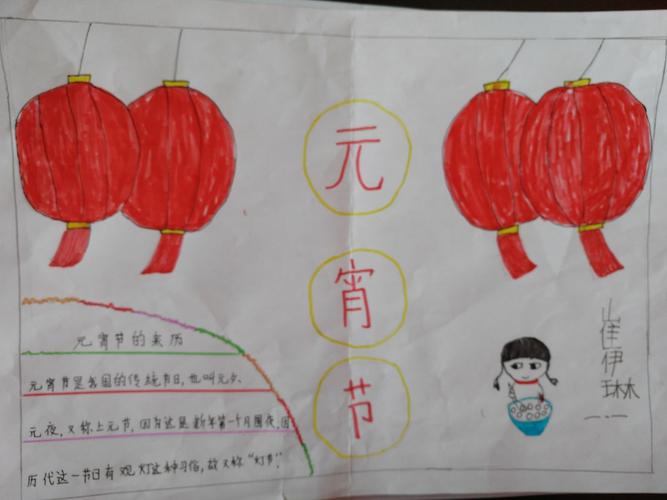 元
宵
节
元宵节的来历
元宵节是我国的传统节日,也叫元夕、
元夜,又称上元节,因为这是新年第一个月圆夜,因
历代这一节日有观灯这种习俗,故又称“灯节”.
崔伊琳
一.一